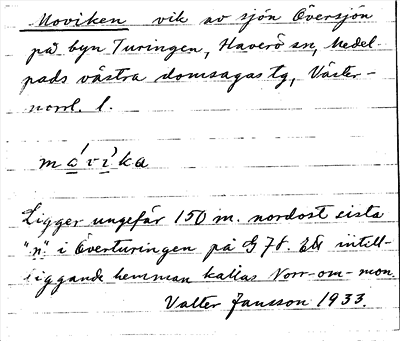 Moviken vik av sjön Översjön
på byn Turingen, Haverö sn, Medel-
pads västra domsagas tg, Väster-
norrl. l.
mávìka
Ligger ungefär 150 m. nordost sista
"n" i Överturingen på G 78. Ett intill-
liggande hemman kallas Norr-om-mon.
Valter Jansson 1933.